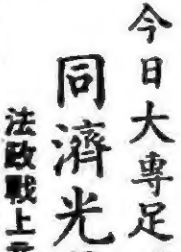 今日大專足
同濟光
法政戰上